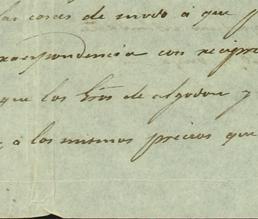 las cosas de modo á que
correspondencia con recipro
que los hños de algodon y
á los mismos precios que